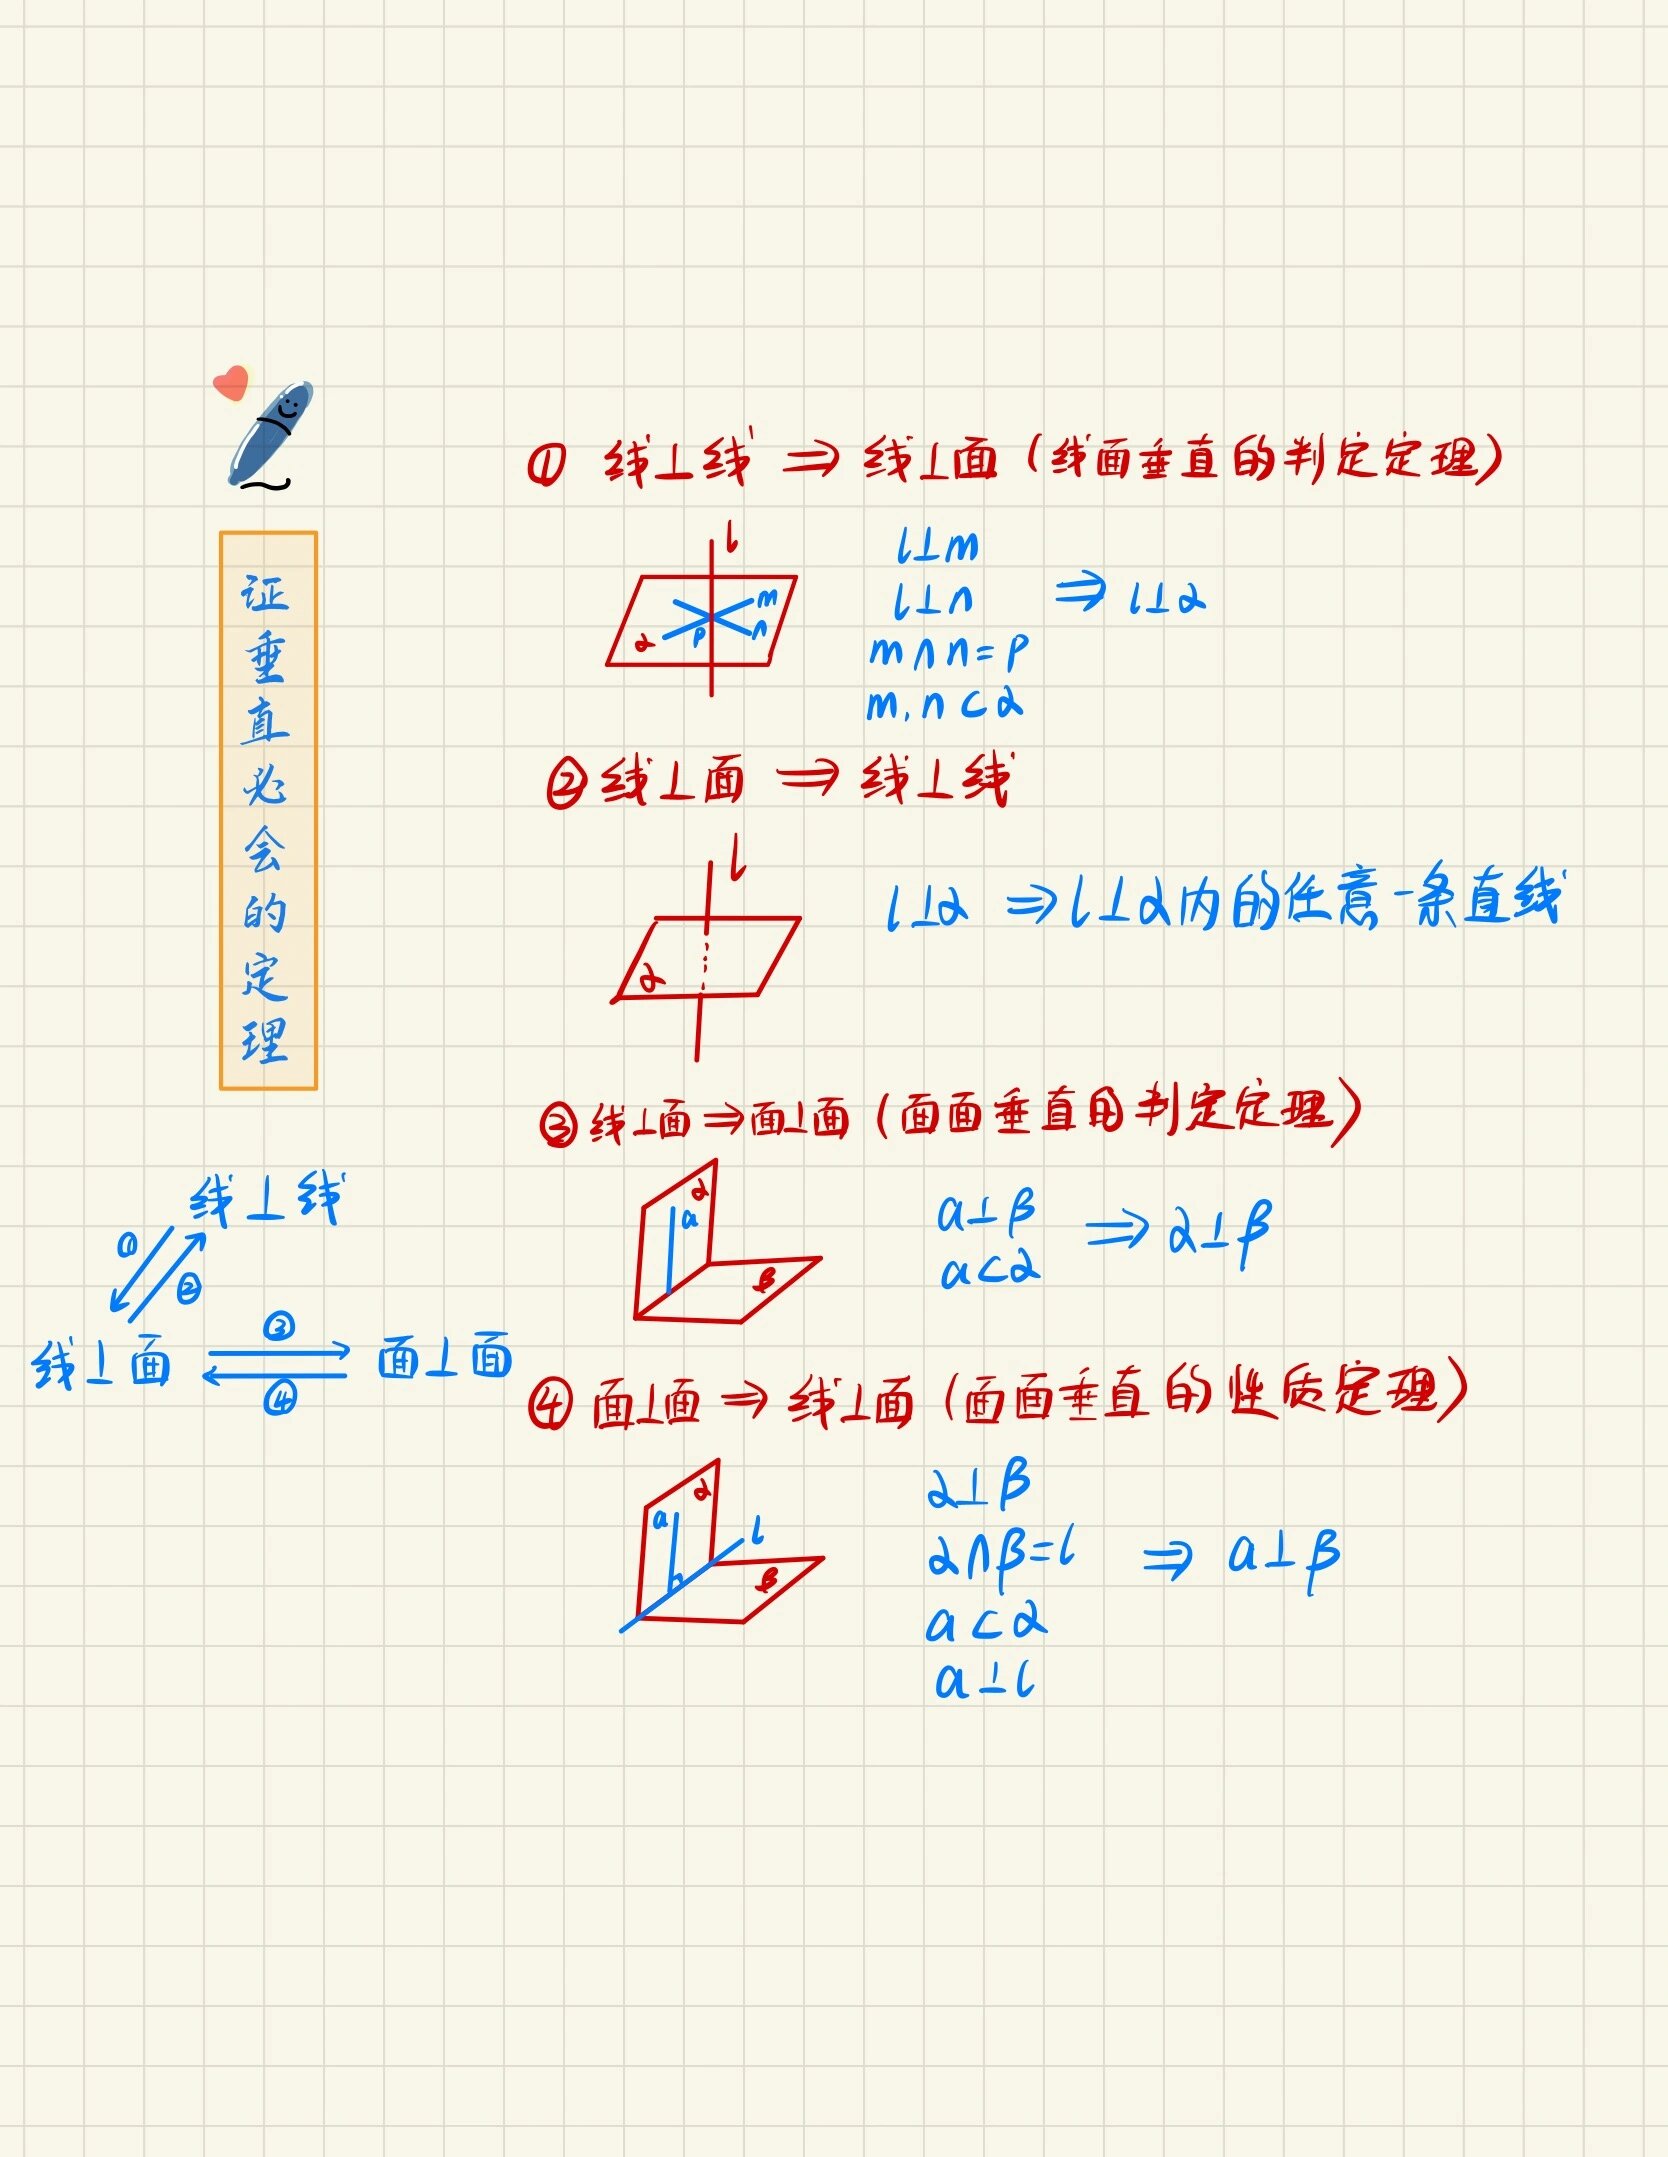 证垂直必会的定理
线⊥线
①
②
线⊥面
③
④
面⊥面
① 线⊥线 ⇒ 线⊥面（线面垂直的判定定理）
l
m
n
p
α
l⊥m
l⊥n ⇒ l⊥α
m∩n=p
m,n⊂α
② 线⊥面 ⇒ 线⊥线
l
α
l⊥α ⇒ l⊥α内的任意一条直线
③ 线⊥面⇒面⊥面（面面垂直的判定定理）
α
a
β
a⊥β ⇒ α⊥β
a⊂α
④ 面⊥面 ⇒ 线⊥面（面面垂直的性质定理）
α
a
l
β
α⊥β
α∩β=l ⇒ a⊥β
a⊂α
a⊥l